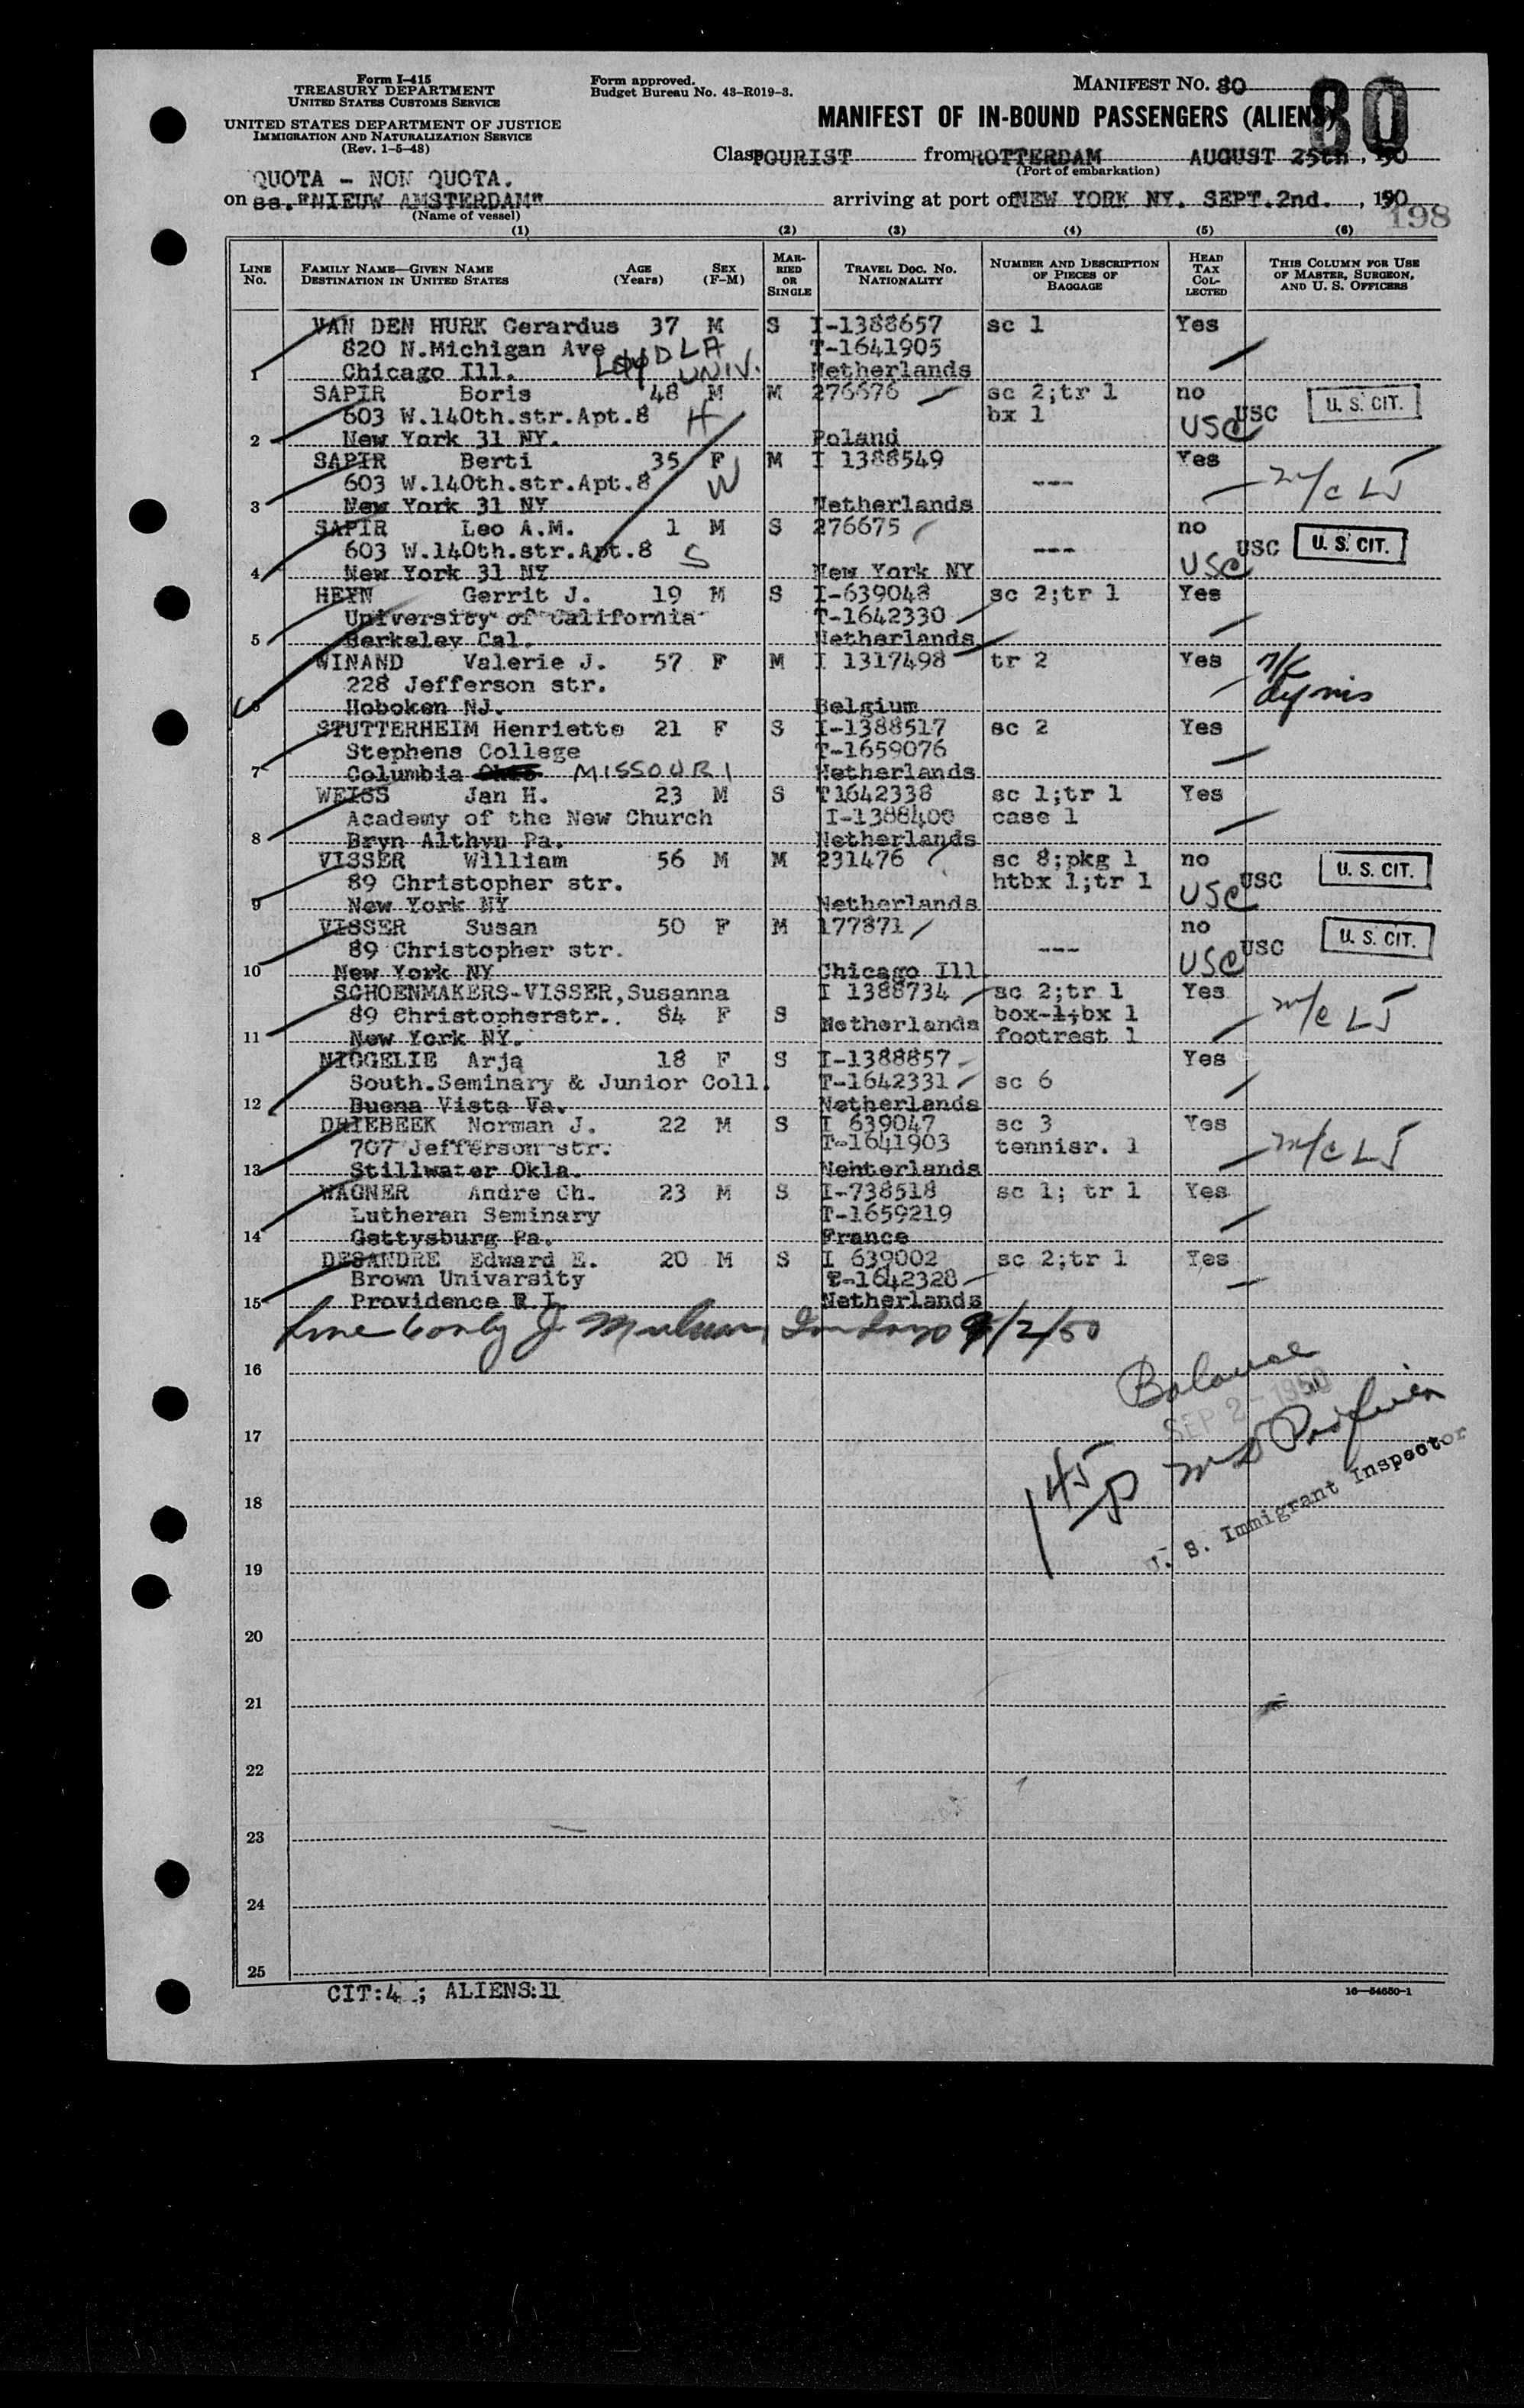 Form I-415
TREASURY DEPARTMENT
UNITED STATES CUSTOMS SERVICE
UNITED STATES DEPARTMENT OF JUSTICE
IMMIGRATION AND NATURALIZATION SERVICE
(Rev. 1-5-48)
Form approved.
Budget Bureau No. 43-R019-3.
MANIFEST NO. 80
80
MANIFEST OF IN-BOUND PASSENGERS (ALIENS)
Class TOURIST from ROTTERDAM AUGUST 25th, 1950
(Port of embarkation)
QUOTA - NON QUOTA.
on ss."NIEUW AMSTERDAM" arriving at port of NEW YORK NY. SEPT.2nd. , 1950
(Name of vessel)
198
(1) (2) (3) (4) (5) (6)
LINE No. FAMILY NAME—GIVEN NAME DESTINATION IN UNITED STATES AGE (Years) SEX (F-M) MARRIED OR SINGLE TRAVEL DOC. NO. NATIONALITY NUMBER AND DESCRIPTION OF PIECES OF BAGGAGE HEAD TAX COLLECTED THIS COLUMN FOR USE OF MASTER, SURGEON, AND U. S. OFFICERS
VAN DEN HURK Gerardus 37 M S I-1388657 sc 1 Yes
820 N.Michigan Ave T-1641905
1 Chicago Ill. LOYOLA UNIV. Netherlands
SAPIR Boris 48 M M 276676 sc 2;tr 1 no U. S. CIT.
603 W.140th.str.Apt.8 H bx 1 USC USC
2 New York 31 NY. Poland
SAPIR Berti 35 F M I 1388549 Yes
603 W.140th.str.Apt.8 W ---
3 New York 31 NY Netherlands
SAPIR Leo A.M. 1 M S 276675 no
603 W.140th.str.Apt.8 S --- USC USC U. S. CIT.
4 New York 31 NY New York NY
HEYN Gerrit J. 19 M S I-639048 sc 2;tr 1 Yes
University of California T-1642330
5 Berkeley Cal. Netherlands
WINAND Valerie J. 57 F M I 1317498 tr 2 Yes
228 Jefferson str.
6 Hoboken NJ. Belgium
STUTTERHEIM Henriette 21 F S I-1388517 sc 2 Yes
Stephens College T-1659076
7 Columbia MISSOURI Netherlands
WEISS Jan H. 23 M S T1642338 sc 1;tr 1 Yes
Academy of the New Church I-1388400 case 1
8 Bryn Althyn Pa. Netherlands
VISSER William 56 M M 231476 sc 8;pkg 1 no U. S. CIT.
89 Christopher str. htbx 1;tr 1 USC USC
9 New York NY Netherlands
VISSER Susan 50 F M 177871 no U. S. CIT.
89 Christopher str. --- USC USC
10 New York NY Chicago Ill.
SCHOENMAKERS-VISSER,Susanna I 1388734 sc 2;tr 1 Yes
89 Christopherstr. 84 F S Netherlands box-1;bx 1
11 New York NY. footrest 1
NIGGELIE Arja 18 F S I-1388857 Yes
South.Seminary & Junior Coll. T-1642331 sc 6
12 Buena Vista Va. Netherlands
DRIEBEEK Norman J. 22 M S I 639047 sc 3 Yes
707 Jefferson str. T-1641903 tennisr. 1
13 Stillwater Okla. Nehterlands
WAGNER Andre Ch. 23 M S I-738518 sc 1; tr 1 Yes
Lutheran Seminary T-1659219
14 Gettysburg Pa. France
DESANDRE Edward E. 20 M S I 639002 sc 2;tr 1 Yes
Brown Univarsity T-1642328
15 Providence R.I. Netherlands
Line 6 only 9/2/50
16
Balance
SEP 2 1950
17
18
U. S. Immigrant Inspector
19
20
21
22
23
24
25
CIT:4 ; ALIENS:11
16—54650-1